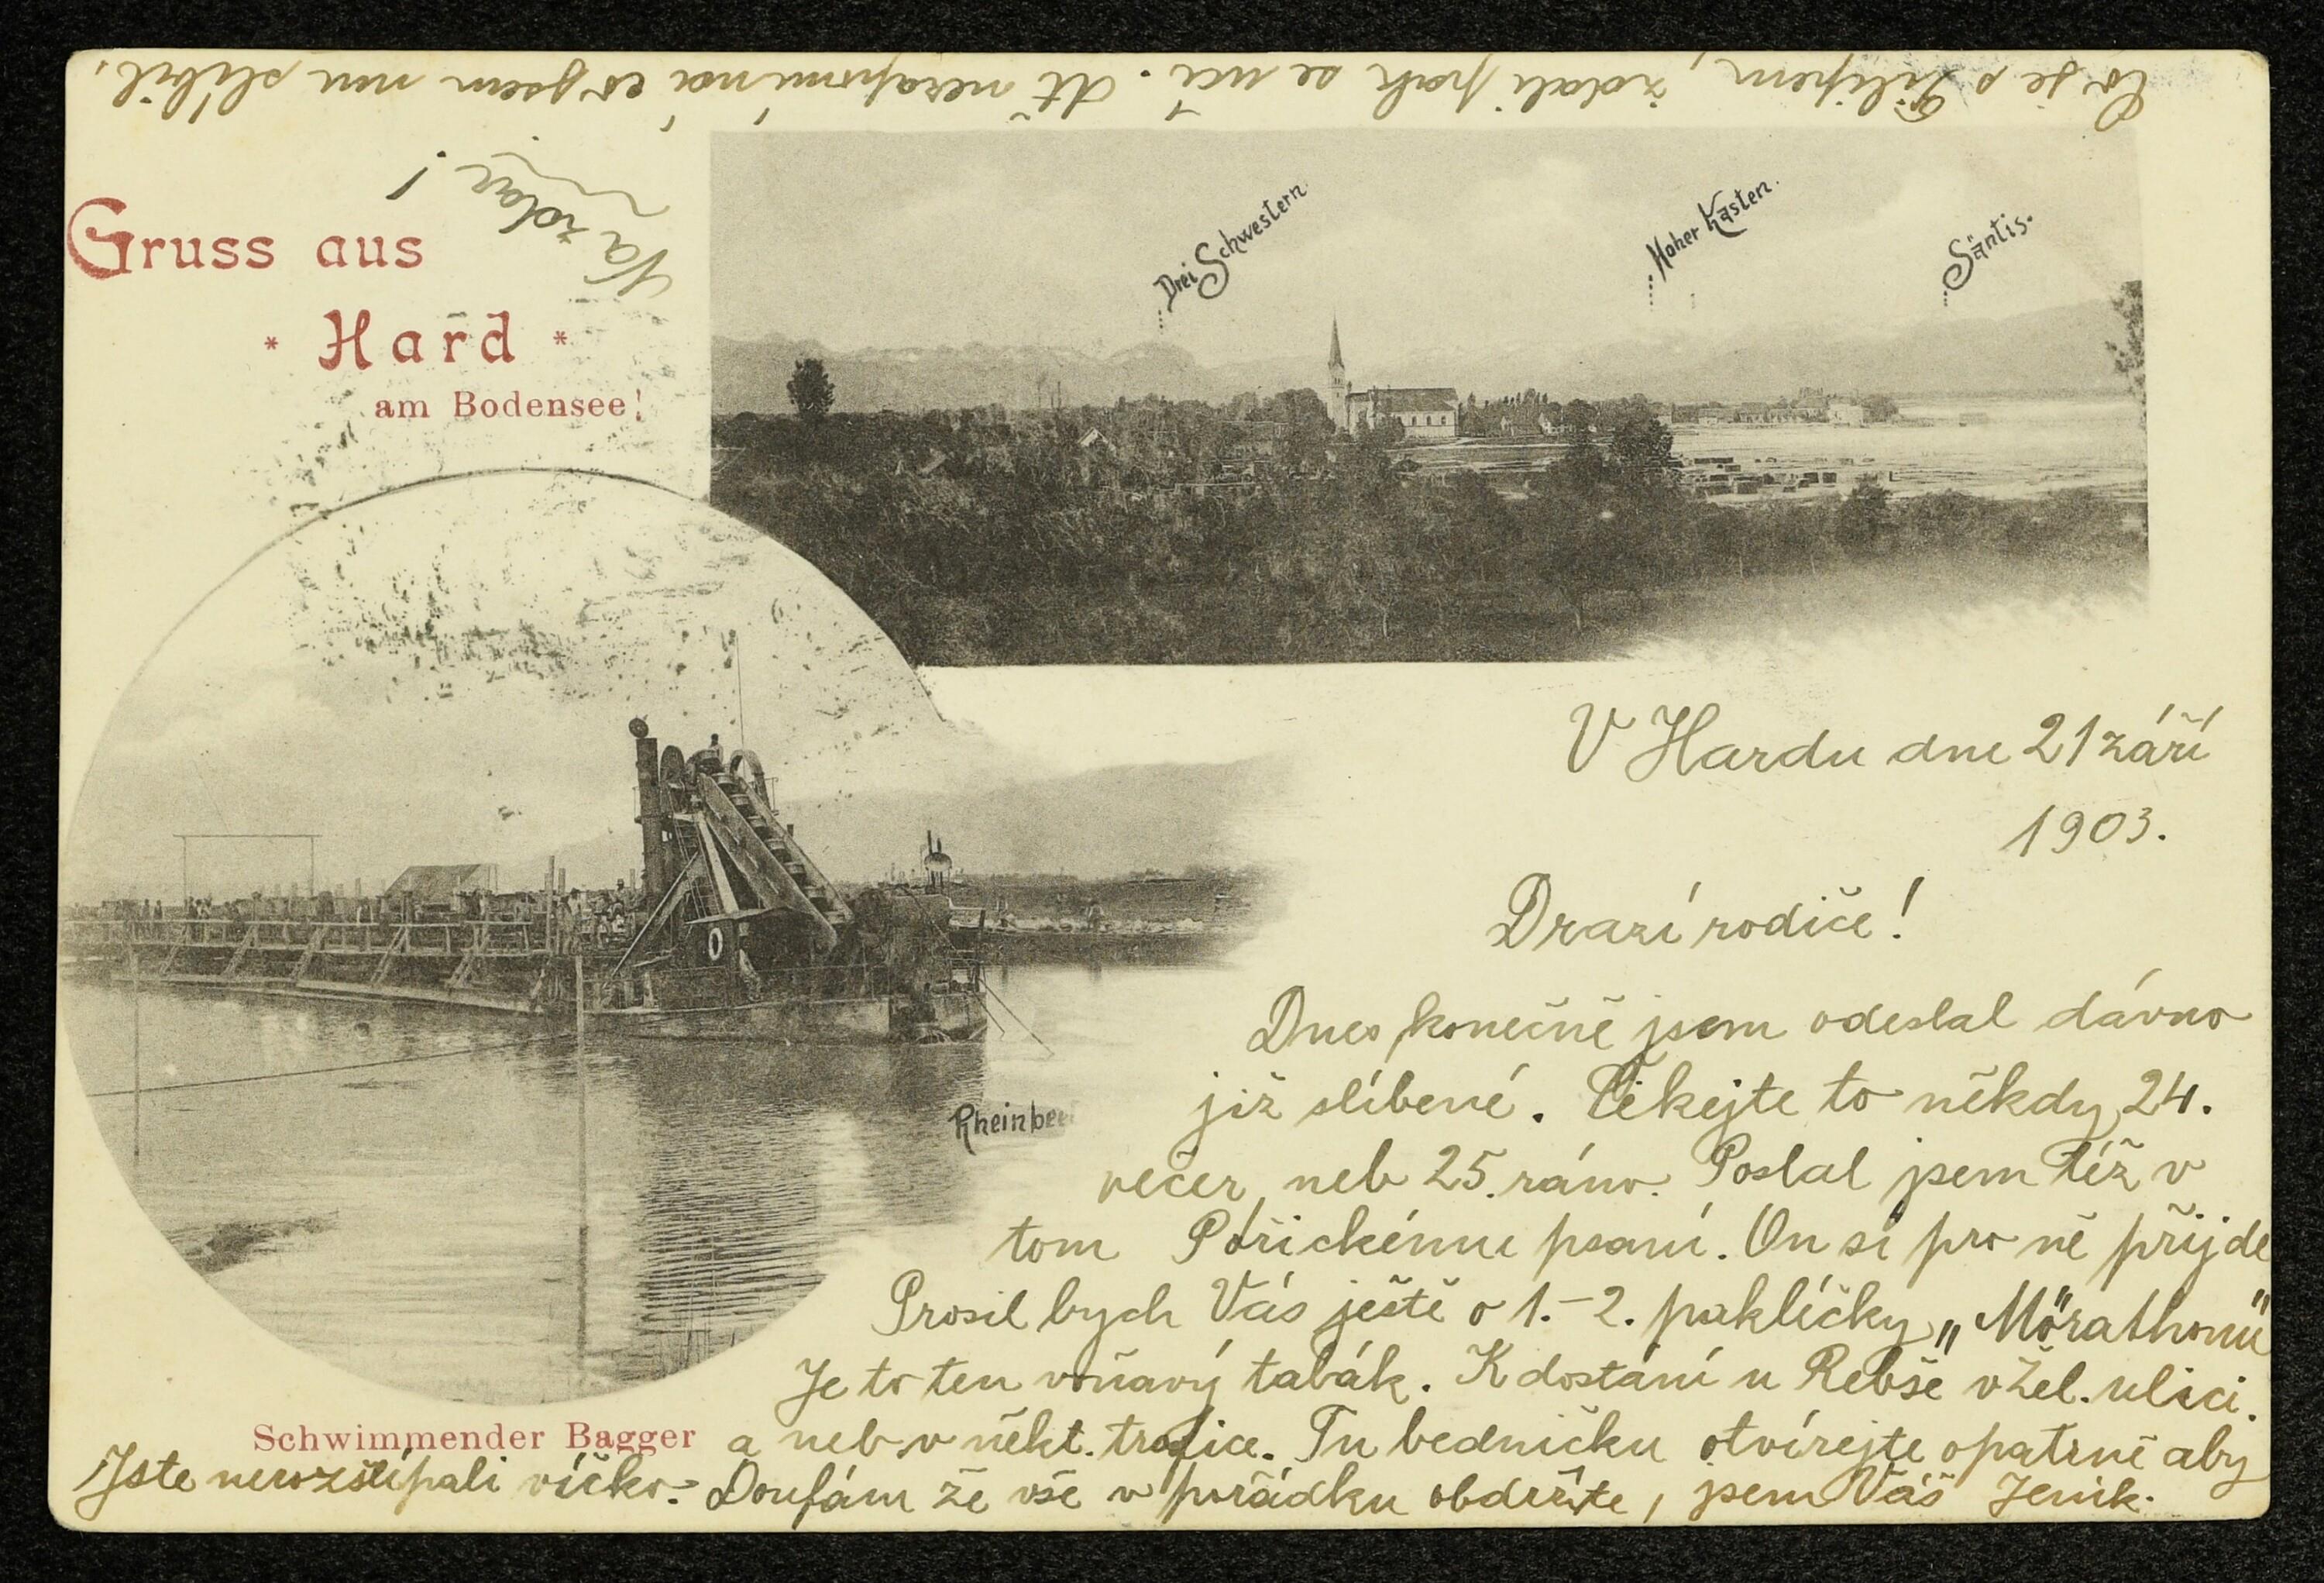 Co je s Filipem, zdali pak se učí. Ať nezapomíná co jsem mu slíbil.
Na zdar!
Gruss aus
* Hard *
am Bodensee!
Drei Schwestern.
Hoher Kasten.
Säntis.
V Hardu dne 21 září
1903.
Drazí rodiče!
Dnes konečně jsem odeslal dávno
již slíbené. Čekejte to někdy 24.
večer neb 25. ráno. Poslal jsem též v
tom Pořickému psaní. On si pro ně přijde
Prosil bych Vás ještě o 1.-2. paklíčky „Mörathonu"
Je to ten voňavý tabák. K dostání u Rebše v Žel. ulici.
Rheinbee
Schwimmender Bagger
a neb v někt. trafice. Tu bedničku otvírejte opatrně aby
Jste nerozštípali víčko. Doufám že vše v pořádku obdržíte, jsem Váš Jeník.